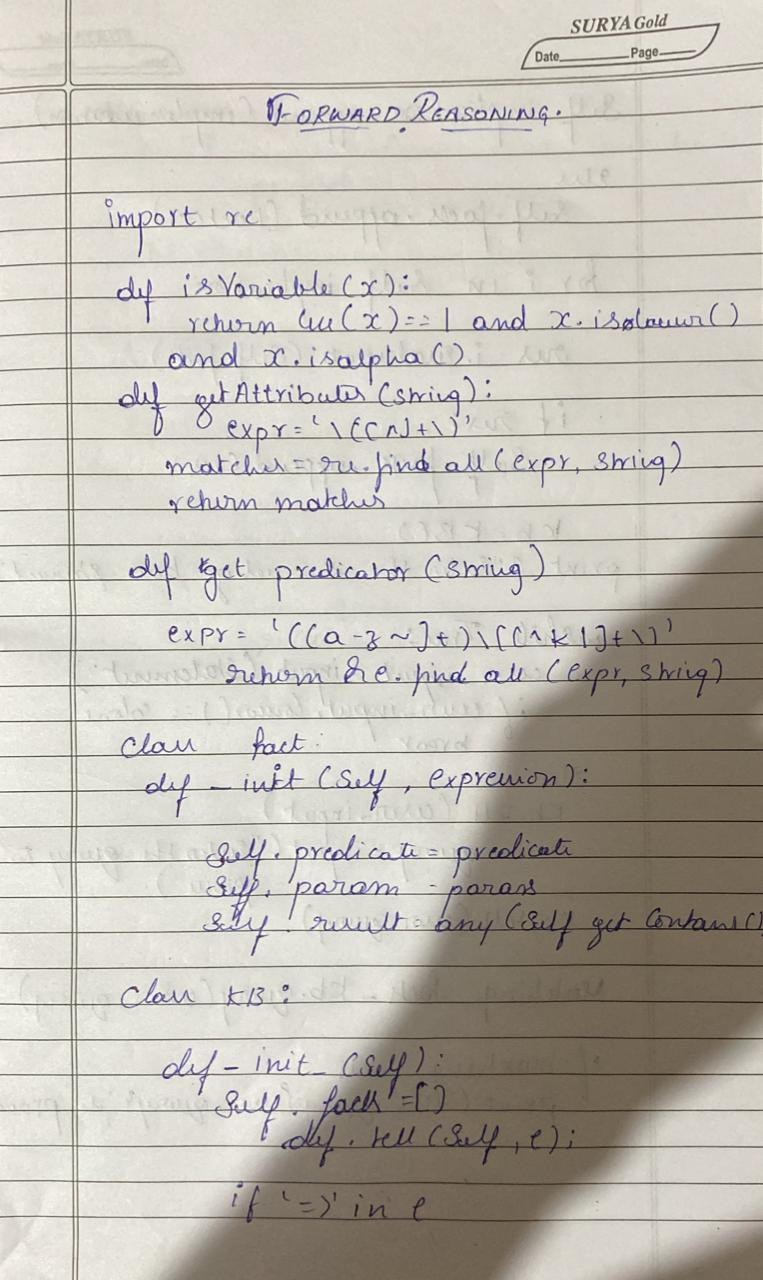 SURYA Gold
Date Page
FORWARD REASONING.
import re
def isVariable(x):
return len(x)==1 and x.islower()
and x.isalpha()
def getAttributes(string):
expr='\([^)]+\)'
matches=re.findall(expr, string)
return matches
def get predicator (string)
expr= '([a-z~]+)\([^&|]+\)'
return re.find all (expr, string)
Class fact:
def - init (Self, expression):
Self. predicate = predicate
Self. param - params
Self. result = any (Self get Contans()
Class KB:
def - init_ (Self):
Self. facts =[]
def. tell (Self, e);
if '=>' in e